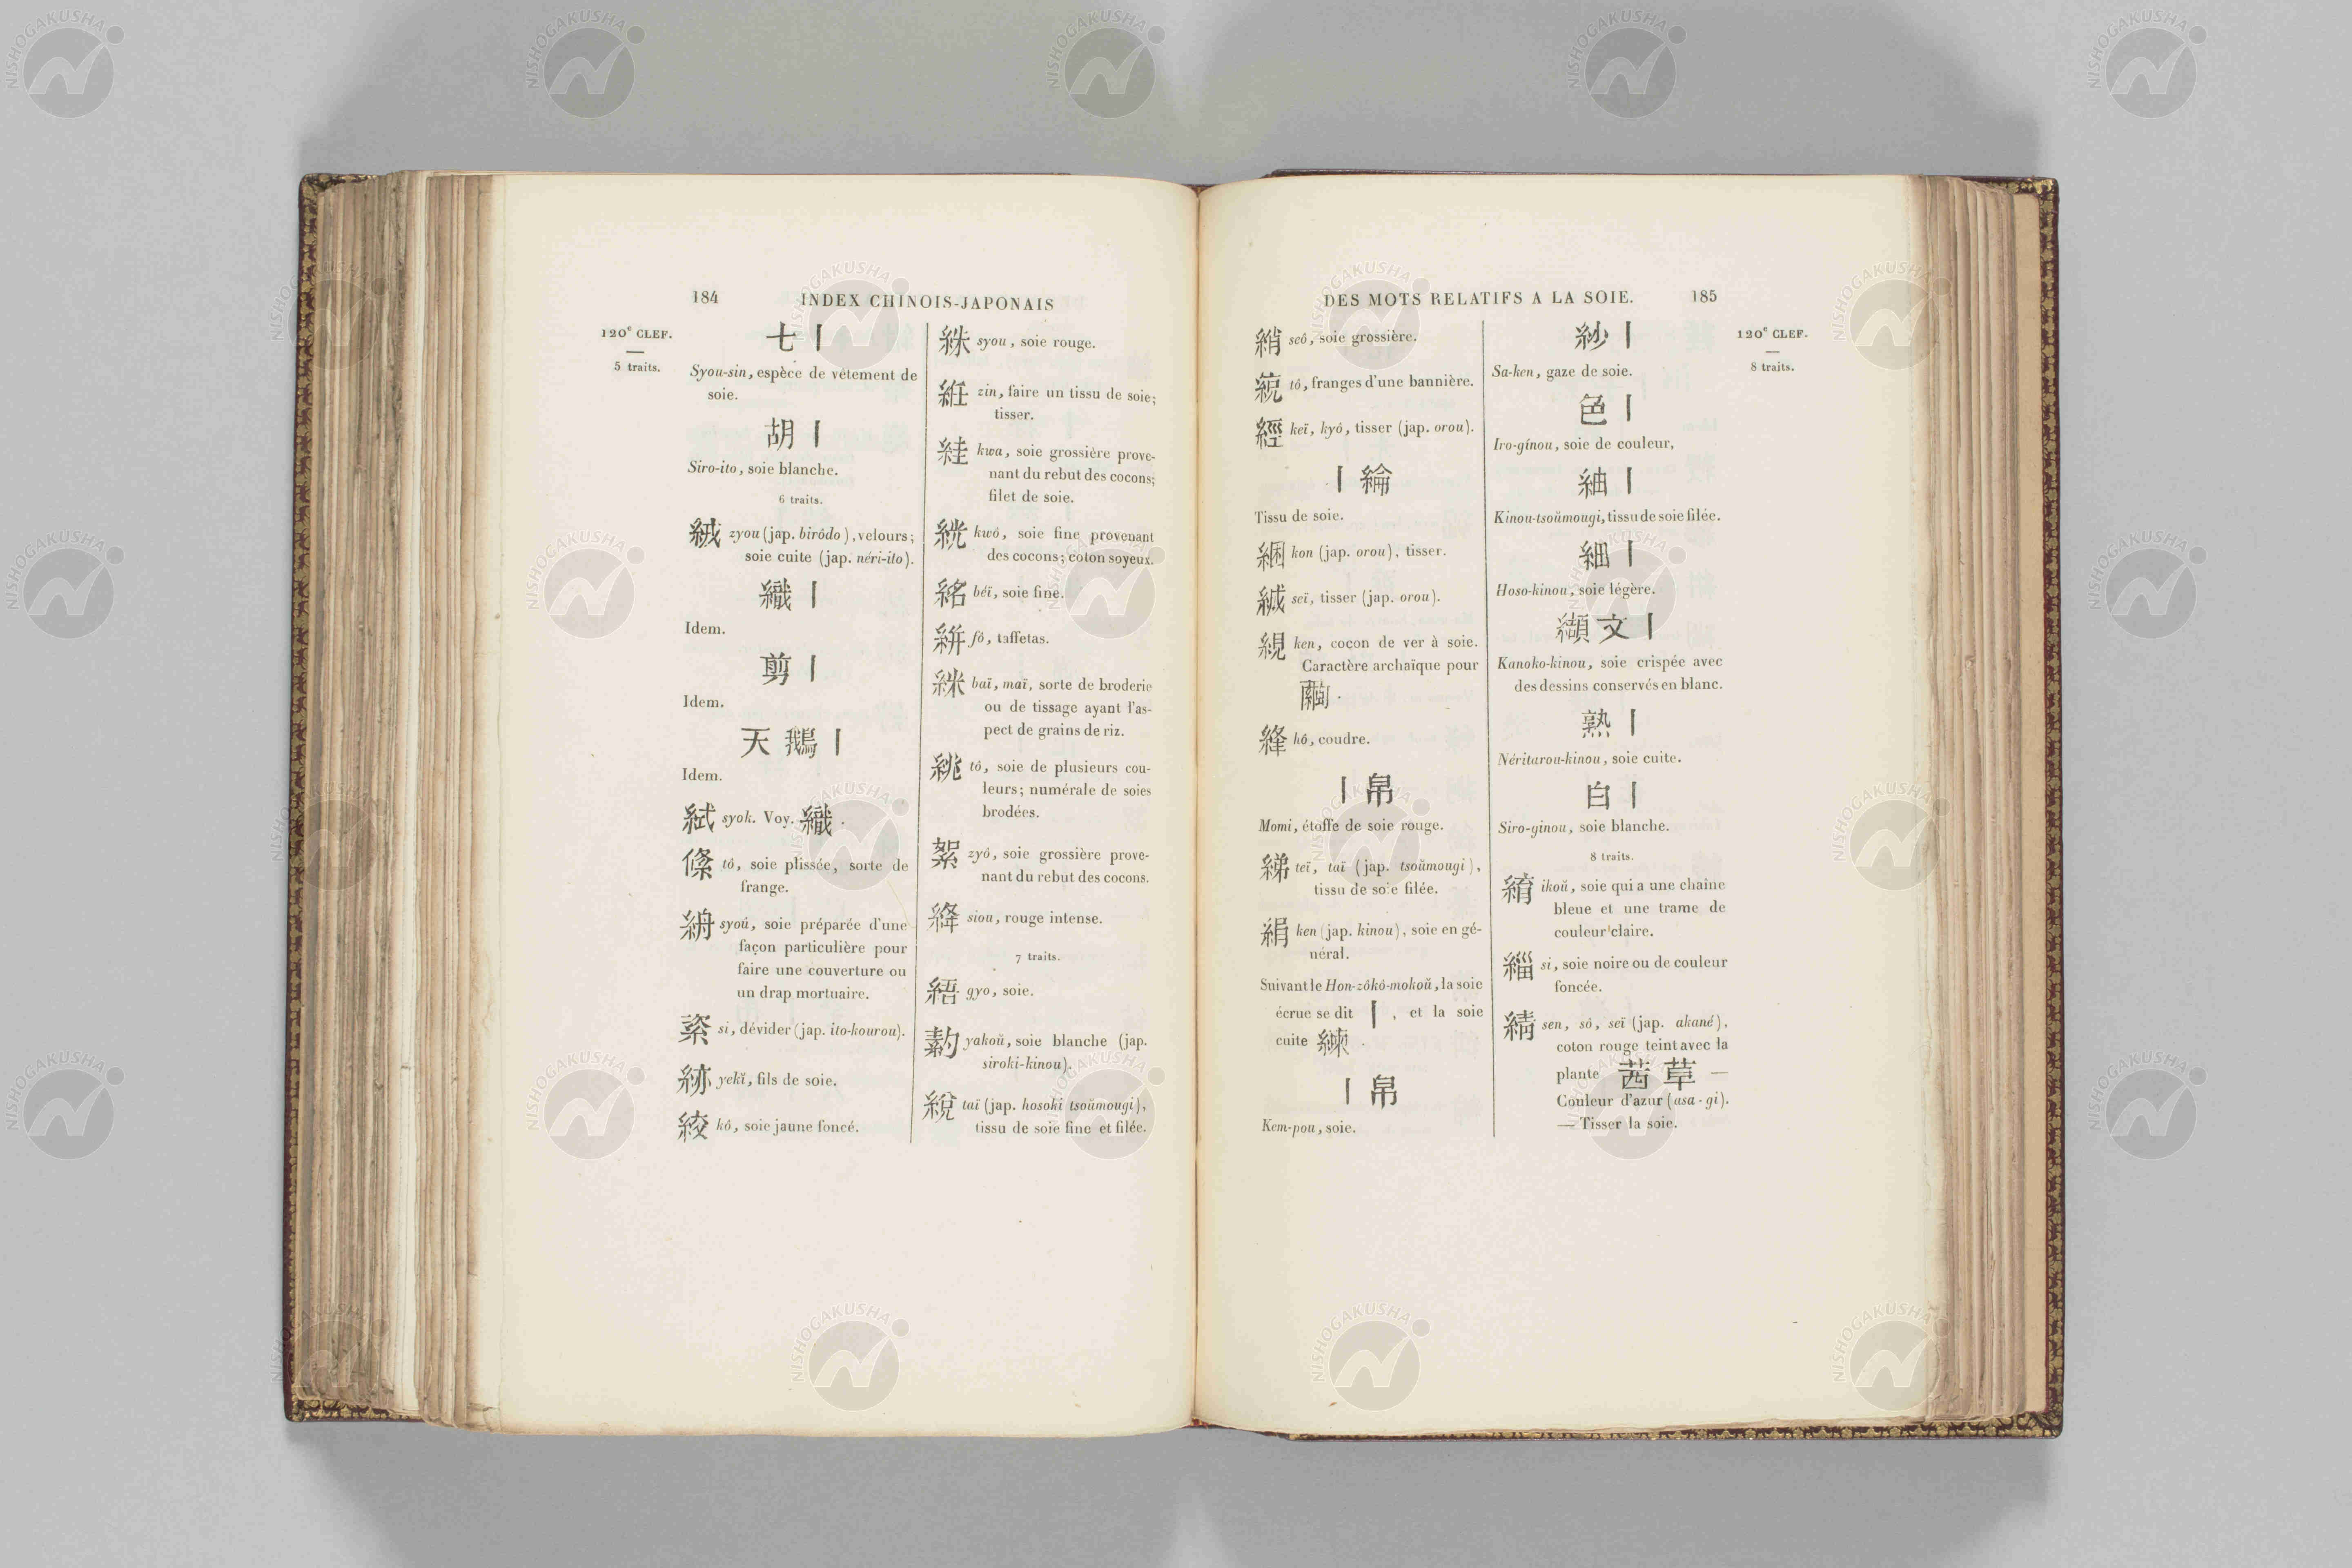 184
INDEX CHINOIS-JAPONAIS
120e CLEF.
5 traits.
七 |
Syou-sin, espèce de vêtement de
soie.
胡 |
Siro-ito, soie blanche.
6 traits.
絨 zyou (jap. birôdo), velours;
soie cuite (jap. néri-ito).
織 |
Idem.
剪 |
Idem.
天 鵝 |
Idem.
絘 syok. Voy. 織.
絛 tô, soie plissée, sorte de
frange.
syoŭ, soie préparée d'une
façon particulière pour
faire une couverture ou
un drap mortuaire.
si, dévider (jap. ito-kourou).
yekĭ, fils de soie.
絞 kô, soie jaune foncé.
絑 syou, soie rouge.
紝 zin, faire un tissu de soie;
tisser.
絓 kwa, soie grossière prove-
nant du rebut des cocons;
filet de soie.
絖 kwô, soie fine provenant
des cocons; coton soyeux.
béï, soie fine.
絣 fô, taffetas.
絊 baï, maï, sorte de broderie
ou de tissage ayant l'as-
pect de grains de riz.
絩 tô, soie de plusieurs cou-
leurs; numérale de soies
brodées.
絮 zyô, soie grossière prove-
nant du rebut des cocons.
絳 siou, rouge intense.
7 traits.
gyo, soie.
yakoŭ, soie blanche (jap.
siroki-kinou).
綐 taï (jap. hosoki tsoŭmougi),
tissu de soie fine et filée.
DES MOTS RELATIFS A LA SOIE.
185
120e CLEF.
8 traits.
綃 seô, soie grossière.
tô, franges d'une bannière.
經 keï, kyô, tisser (jap. orou).
| 綸
Tissu de soie.
綑 kon (jap. orou), tisser.
seï, tisser (jap. orou).
絸 ken, cocon de ver à soie.
Caractère archaïque pour
繭.
綘 hô, coudre.
| 帛
Momi, étoffe de soie rouge.
綈 teï, taï (jap. tsoŭmougi),
tissu de soie filée.
絹 ken (jap. kinou), soie en gé-
néral.
Suivant le Hon-zôkô-mokoŭ, la soie
écrue se dit |, et la soie
cuite 練.
| 帛
Kem-pou, soie.
紗 |
Sa-ken, gaze de soie.
色 |
Iro-gínou, soie de couleur,
紬 |
Kinou-tsoŭmougi, tissu de soie filée.
細 |
Hoso-kinou, soie légère.
纈 文 |
Kanoko-kinou, soie crispée avec
des dessins conservés en blanc.
熟 |
Néritarou-kinou, soie cuite.
白 |
Siro-ginou, soie blanche.
8 traits.
ikoŭ, soie qui a une chaîne
bleue et une trame de
couleur claire.
緇 si, soie noire ou de couleur
foncée.
綪 sen, sô, seï (jap. akané),
coton rouge teint avec la
plante 茜 草 —
Couleur d'azur (asa-gi).
— Tisser la soie.
NISHOGAKUSHA